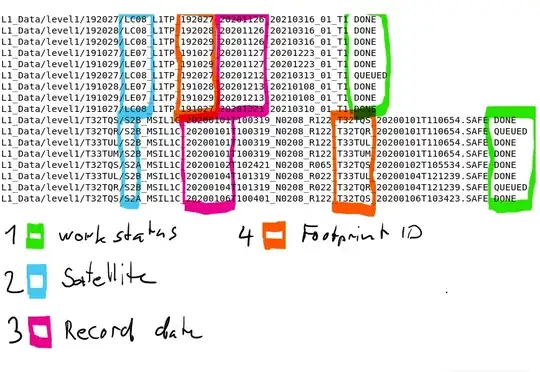 L1_Data/level1/192027/LC08_L1TP_192027_20201126_20210316_01_T1 DONE
L1_Data/level1/192028/LC08_L1TP_192028_20201126_20210316_01_T1 DONE
L1_Data/level1/192029/LC08_L1TP_192029_20201126_20210316_01_T1 DONE
L1_Data/level1/191027/LE07_L1TP_191027_20201127_20201223_01_T1 DONE
L1_Data/level1/191028/LE07_L1TP_191028_20201127_20201223_01_T1 DONE
L1_Data/level1/192027/LE07_L1TP_192027_20201213_20210313_01_T1 QUEUED
L1_Data/level1/192028/LE07_L1TP_192028_20201213_20210108_01_T1 DONE
L1_Data/level1/192029/LE07_L1TP_192029_20201213_20210108_01_T1 DONE
L1_Data/level1/191027/LC08_L1TP_191027_20201221_20210310_01_T1 DONE
L1_Data/level1/T32TQS/S2B_MSIL1C_20200101T100319_N0208_R122_T32TQS_20200101T110654.SAFE DONE
L1_Data/level1/T32TQR/S2B_MSIL1C_20200101T100319_N0208_R122_T32TQR_20200101T110654.SAFE QUEUED
L1_Data/level1/T33TUL/S2B_MSIL1C_20200101T100319_N0208_R122_T33TUL_20200101T110654.SAFE DONE
L1_Data/level1/T33TUM/S2B_MSIL1C_20200101T100319_N0208_R122_T33TUM_20200101T110654.SAFE DONE
L1_Data/level1/T32TQS/S2A_MSIL1C_20200102T102421_N0208_R065_T32TQS_20200102T105534.SAFE DONE
L1_Data/level1/T33TUL/S2B_MSIL1C_20200104T101319_N0208_R022_T33TUL_20200104T121239.SAFE DONE
L1_Data/level1/T32TQR/S2B_MSIL1C_20200104T101319_N0208_R022_T32TQR_20200104T121239.SAFE QUEUED
L1_Data/level1/T32TQS/S2A_MSIL1C_20200106T100401_N0208_R122_T32TQS_20200106T103423.SAFE DONE
1 work status
4 Footprint ID
2 Satellite
3 Record date